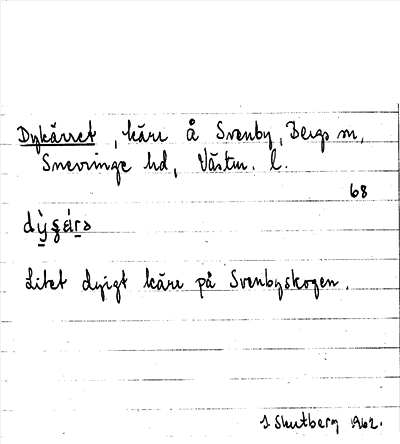 Dykärret, kärr å Svenby, Bergs sn,
Snevringe hd, Västm. l.
68
Litet dyigt kärr på Svenbyskogen.
J Skutberg 1962.